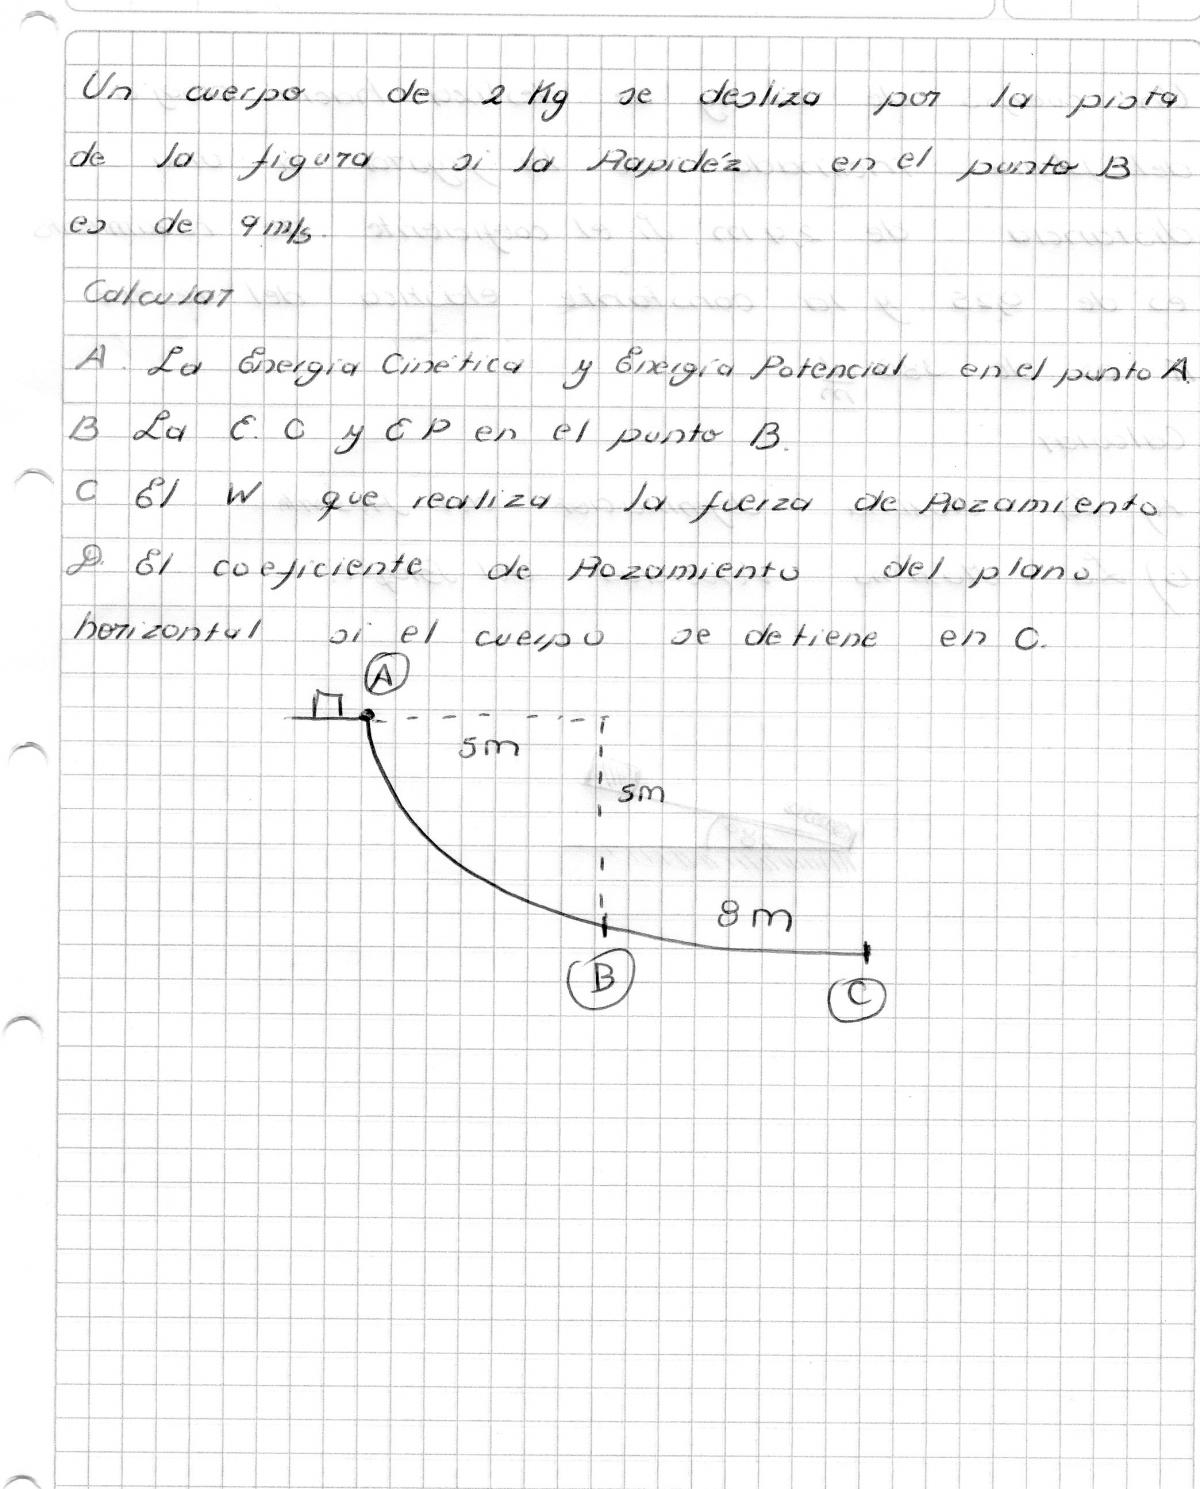 Un cuerpo de 2 Kg se desliza por la pista
de la figura si la Rapidéz en el punto B
es de 9 m/s.
Calcular
A. La Energía Cinética y Energía Potencial en el punto A.
B La E. C y E P en el punto B.
C El W que realiza la fuerza de Rozamiento
D. El coeficiente de Rozamiento del plano
horizontal si el cuerpo se detiene en C.
A
5m
5m
8 m
B
C